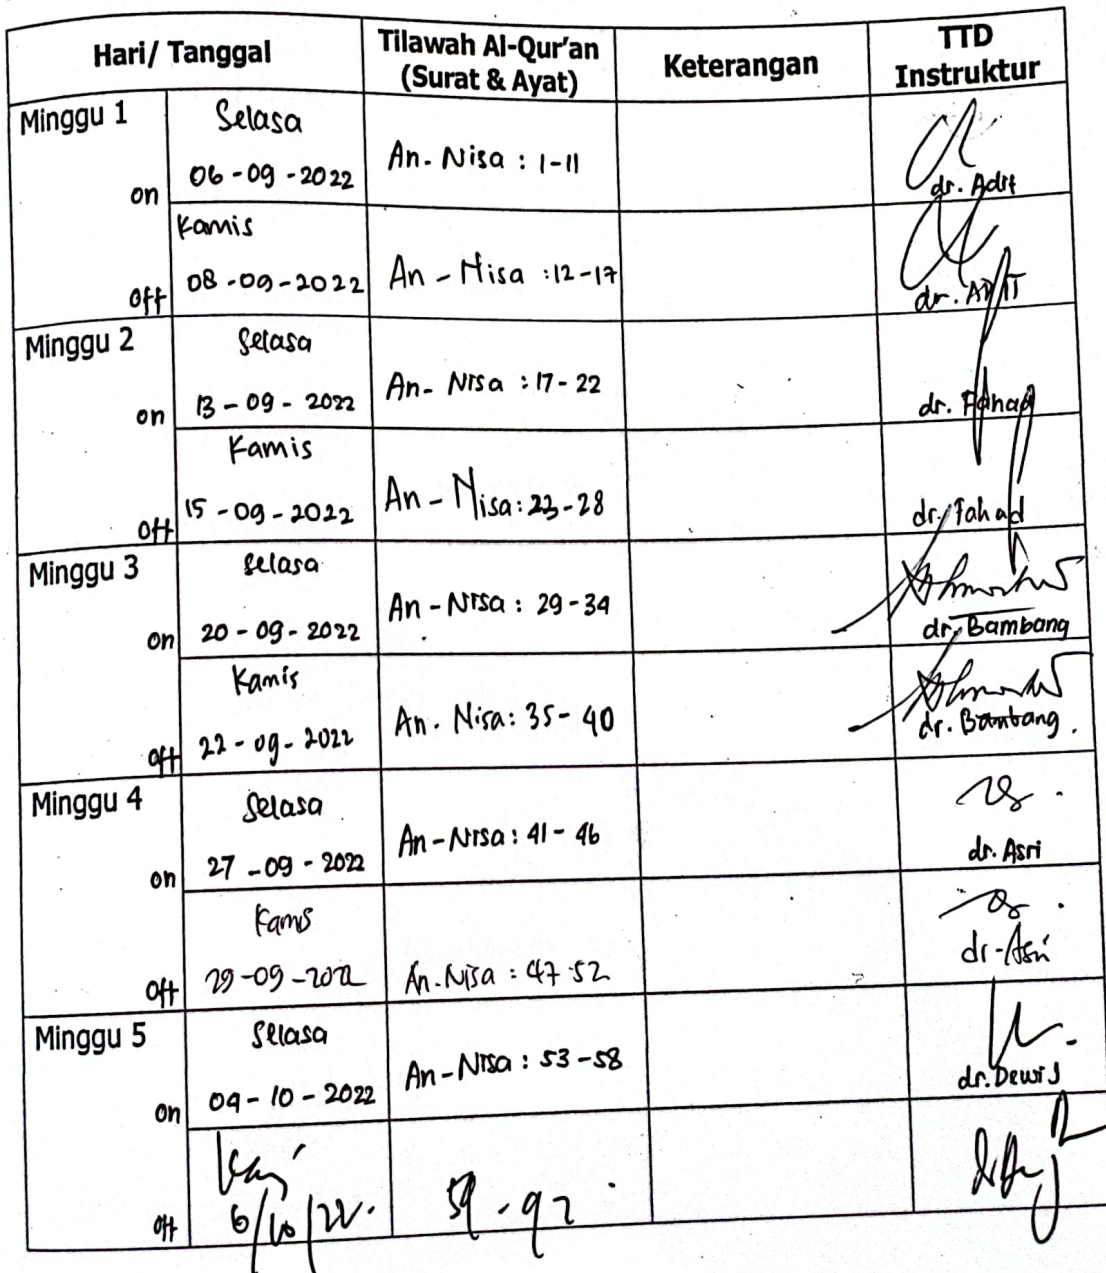 Hari/ Tanggal
Tilawah Al-Qur'an
(Surat & Ayat)
Keterangan
TTD
Instruktur
Minggu 1
Selasa
06-09-2022
on
An-Nisa : 1-11
dr. Adit
Kamis
08-09-2022
Off
An-Nisa : 12-17
dr. ADIT
Minggu 2
Selasa
13-09-2022
on
An-Nisa : 17-22
dr. Fahad
Kamis
15-09-2022
Off
An-Nisa: 23-28
dr. Fahad
Minggu 3
Selasa
20-09-2022
on
An-Nisa : 29-34
dr. Bambang
Kamis
22-09-2022
Off
An. Nisa: 35-40
dr. Bambang.
Minggu 4
Selasa
27-09-2022
on
An-Nisa: 41-46
dr. Asri
Kamis
29-09-2022
Off
An. Nisa : 47-52
dr. Asri
Minggu 5
Selasa
04-10-2022
on
An-Nisa : 53-58
dr. Dewi J
6/10/22.
Off
59-92